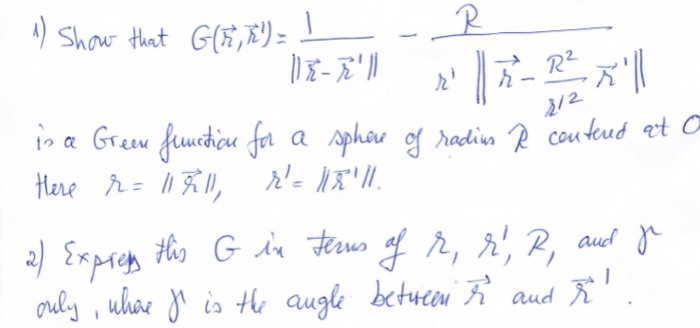 1) Show that G(r⃗, r⃗') = 1 / ||r⃗ - r⃗'|| - R / (r' || r⃗ - R²/r'² r⃗' ||)
is a Green function for a sphere of radius R centered at O
Here r = ||r⃗||, r' = ||r⃗'||.
2) Express this G in terms of r, r', R, and γ
only, where γ is the angle between r⃗ and r⃗'.